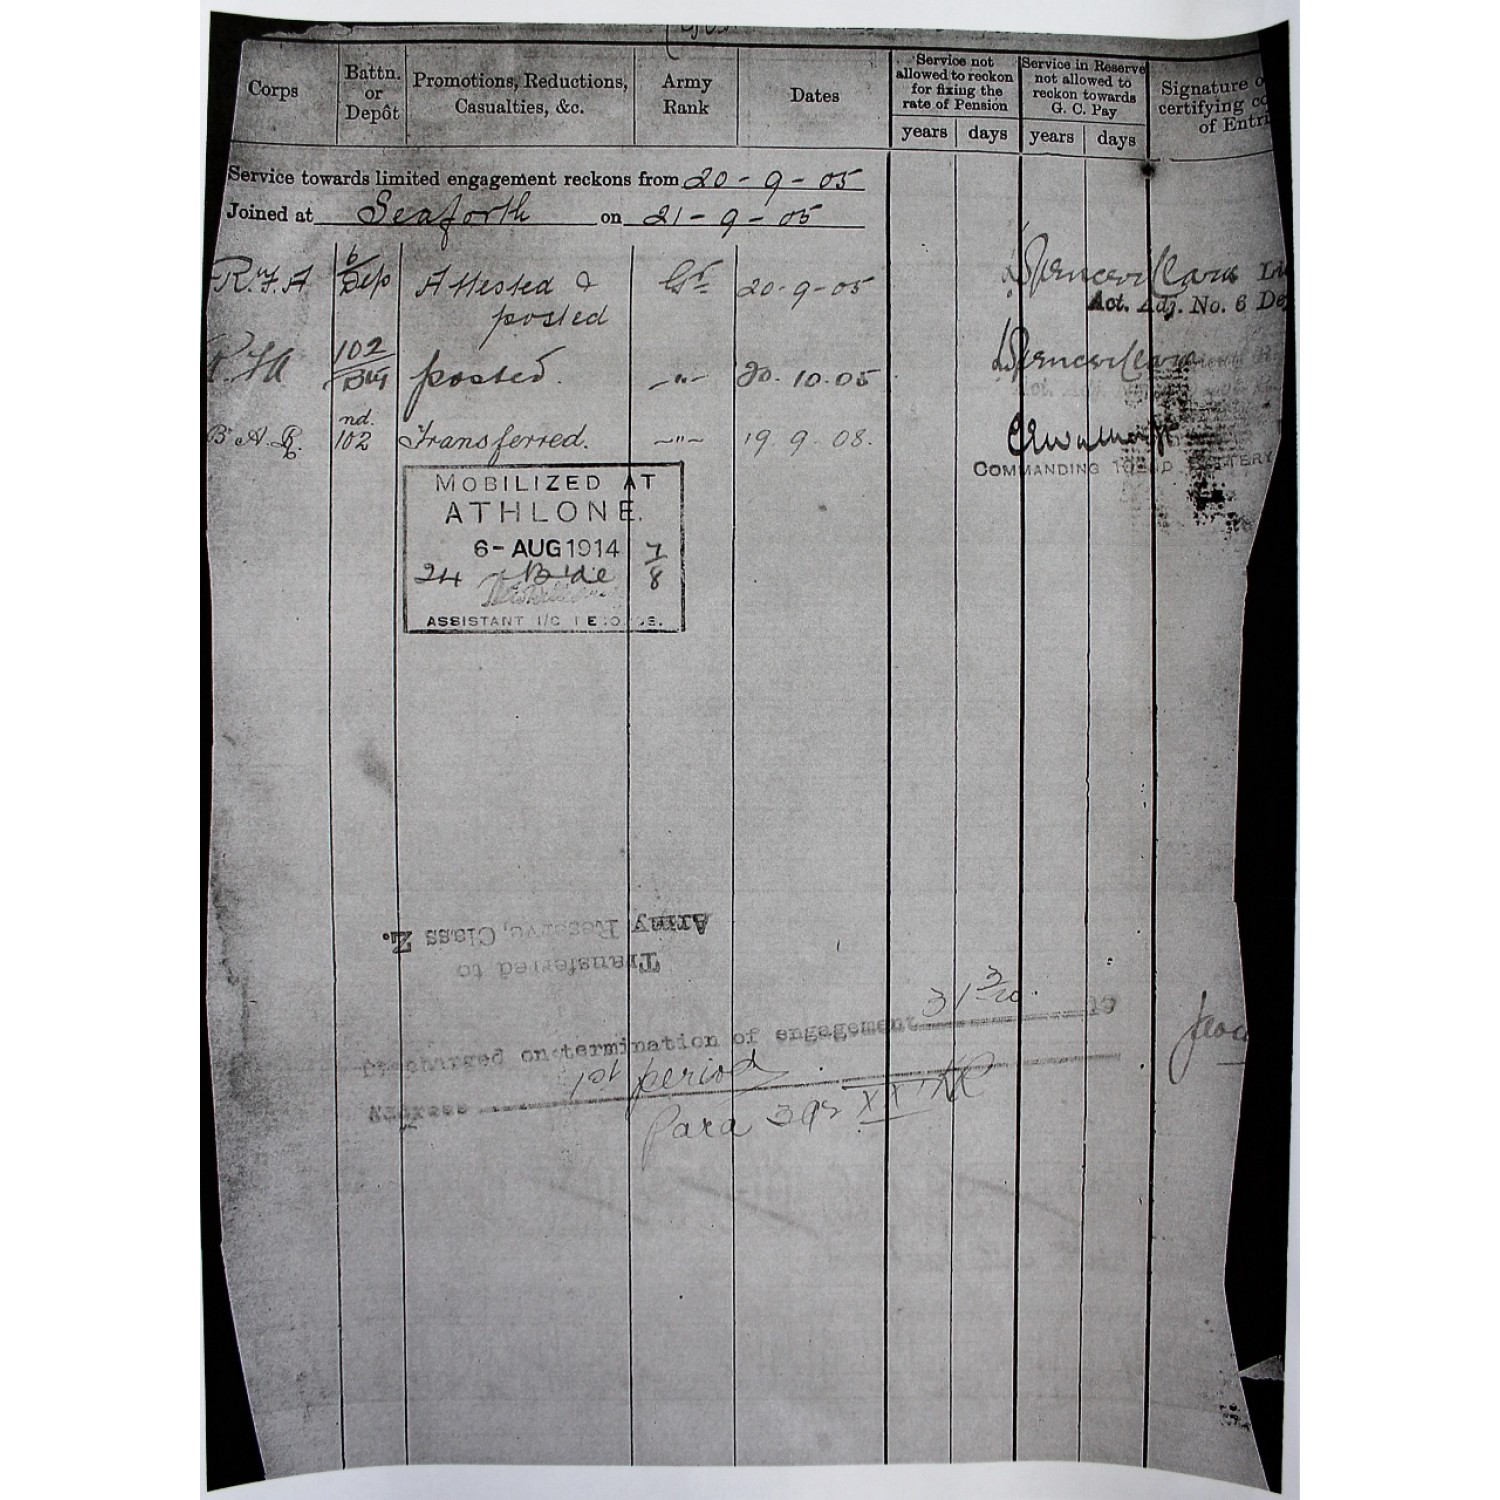 Corps
Battn. or Depôt
Promotions, Reductions, Casualties, &c.
Army Rank
Dates
Service not allowed to reckon for fixing the rate of Pension
years days
Service in Reserve not allowed to reckon towards G. C. Pay
years days
Signature o
certifying
of Entri
Service towards limited engagement reckons from 20-9-05
Joined at Seaforth on 21-9-05
R.F.A 6/Dep Attested & Gr 20-9-05
posted
Act. Adj. No. 6 De
102/Bty posted. -"- 20.10.05
nd.
A. R. 102 Transferred. -"- 19.9.08.
COMMANDING 102ND BATTERY
MOBILIZED AT
ATHLONE.
6-AUG 1914 7/8
24 Bde
ASSISTANT I/C RECORDS.
Transferred to
Army Reserve, Class Z.
31 3/20.
Discharged on termination of engagement 19
1st period
Address
Para 392 XX KR